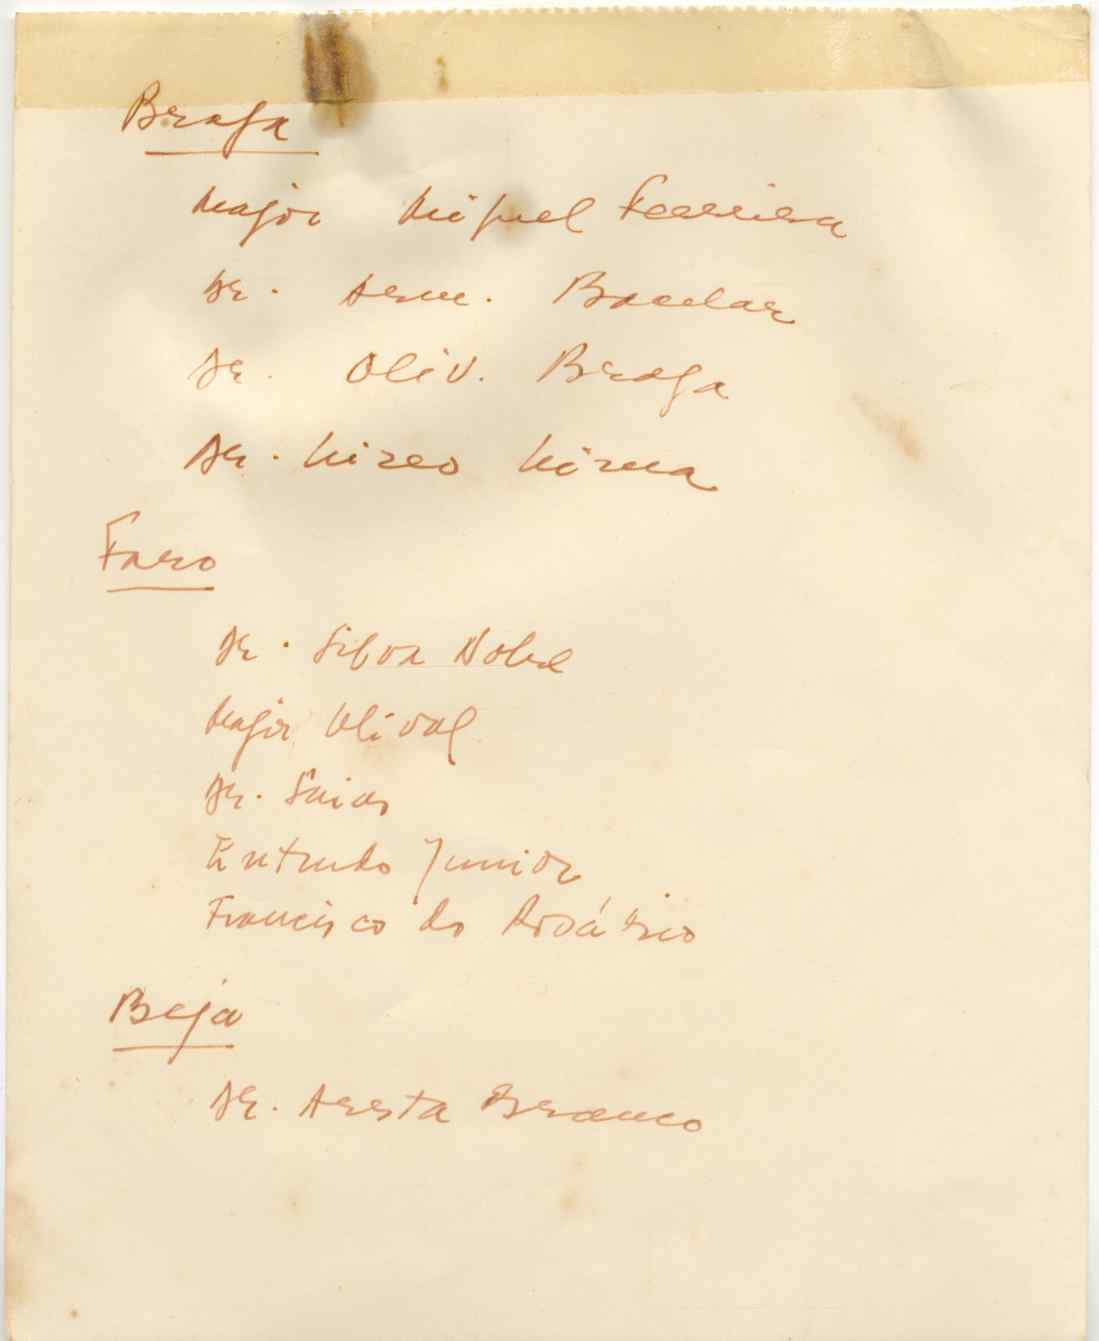 Braga
Major Miguel Ferreira
Dr. Arm. Bacelar
Dr. Oliv. Braga
Dr. Lireo
Faro
Dr. Silva Nobre
Major Olival
Dr.
Entrudo Junior
Francisco do Rosário
Beja
Dr. Aresta Branco